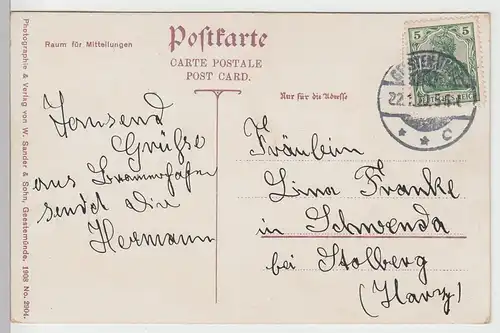 Postkarte
CARTE POSTALE
POST CARD.
Raum für Mitteilungen
Nur für die Adresse
5 5
DEUTSCHES REICH
GEESTEMÜNDE
* * C
Tausend
Grüße
aus Bremerhafen
sendet Dir
Hermann
Fräulein
Lina Franke
in Schwenda
bei Stolberg
(Harz)
Photographie & Verlag von W. Sander & Sohn, Geestemünde. 1908 No. 2904.